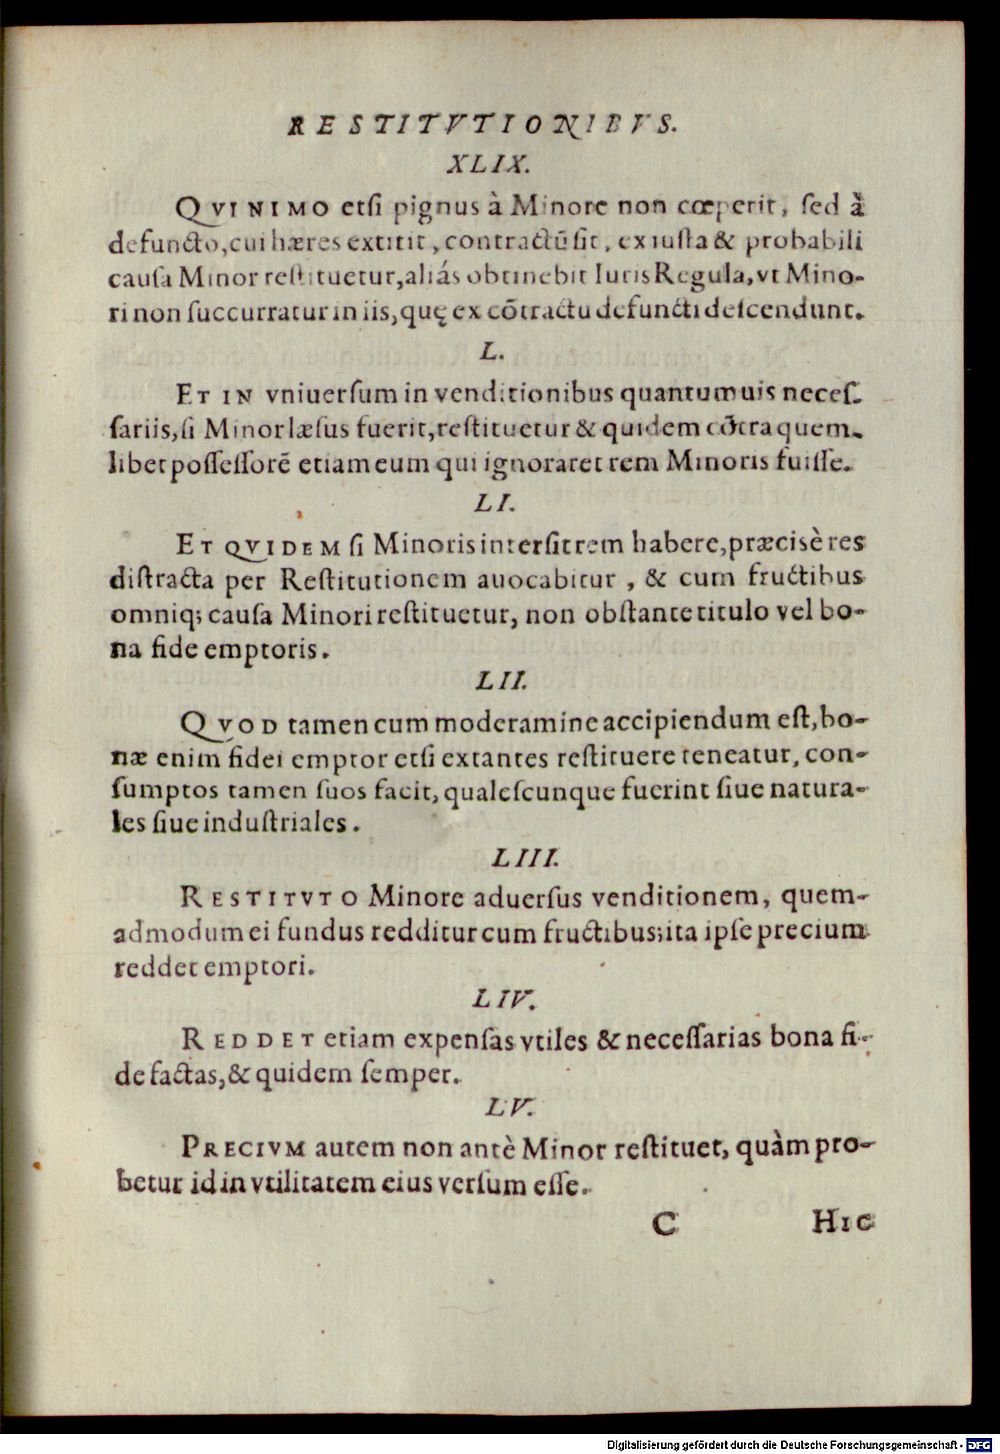 RESTITVTIONIBVS.
XLIX.
QVINIMO etsi pignus à Minore non cœperit, sed à
defuncto, cui hæres extitit, contractū sit, ex iusta & probabili
causa Minor restituetur, aliás obtinebit Iuris Regula, vt Mino-
ri non succurratur in iis, quę ex cōtractu defuncti descendunt.
L.
ET IN vniuersum in venditionibus quantumuis neces-
sariis, si Minor læsus fuerit, restituetur & quidem cōtra quem-
libet possessorē etiam eum qui ignoraret rem Minoris fuisse.
LI.
ET QVIDEM si Minoris intersit rem habere, præcisè res
distracta per Restitutionem auocabitur, & cum fructibus
omniq; causa Minori restituetur, non obstante titulo vel bo-
na fide emptoris.
LII.
QVOD tamen cum moderamine accipiendum est, bo-
næ enim fidei emptor etsi extantes restituere teneatur, con-
sumptos tamen suos facit, qualescunque fuerint siue natura-
les siue industriales.
LIII.
RESTITVTO Minore aduersus venditionem, quem-
admodum ei fundus redditur cum fructibus; ita ipse precium
reddet emptori.
LIV.
REDDET etiam expensas vtiles & necessarias bona fi-
de factas, & quidem semper.
LV.
PRECIVM autem non antè Minor restituet, quàm pro-
betur id in vtilitatem eius versum esse.
C HIC
Digitalisierung gefördert durch die Deutsche Forschungsgemeinschaft - DFG